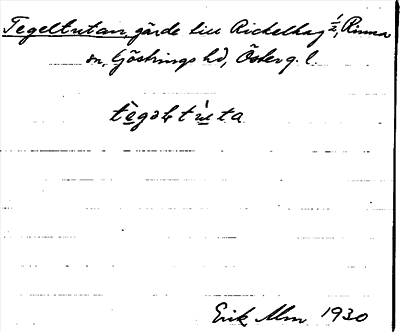 Tegeltutan, gärde till Rickelhag ½, Rinna
sn, Göstrings hd, Österg. l.
tègəltùta
Erik Alm 1930